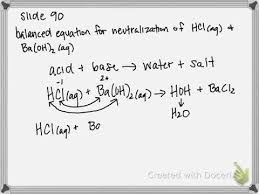 slide 90
balanced equation for neutralization of HCl(aq) &
Ba(OH)₂(aq)
acid + base → water + salt
-1 2+
HCl(aq) + Ba(OH)₂(aq) → HOH + BaCl₂
H₂O
HCl(aq) + Ba
Created with Doceri